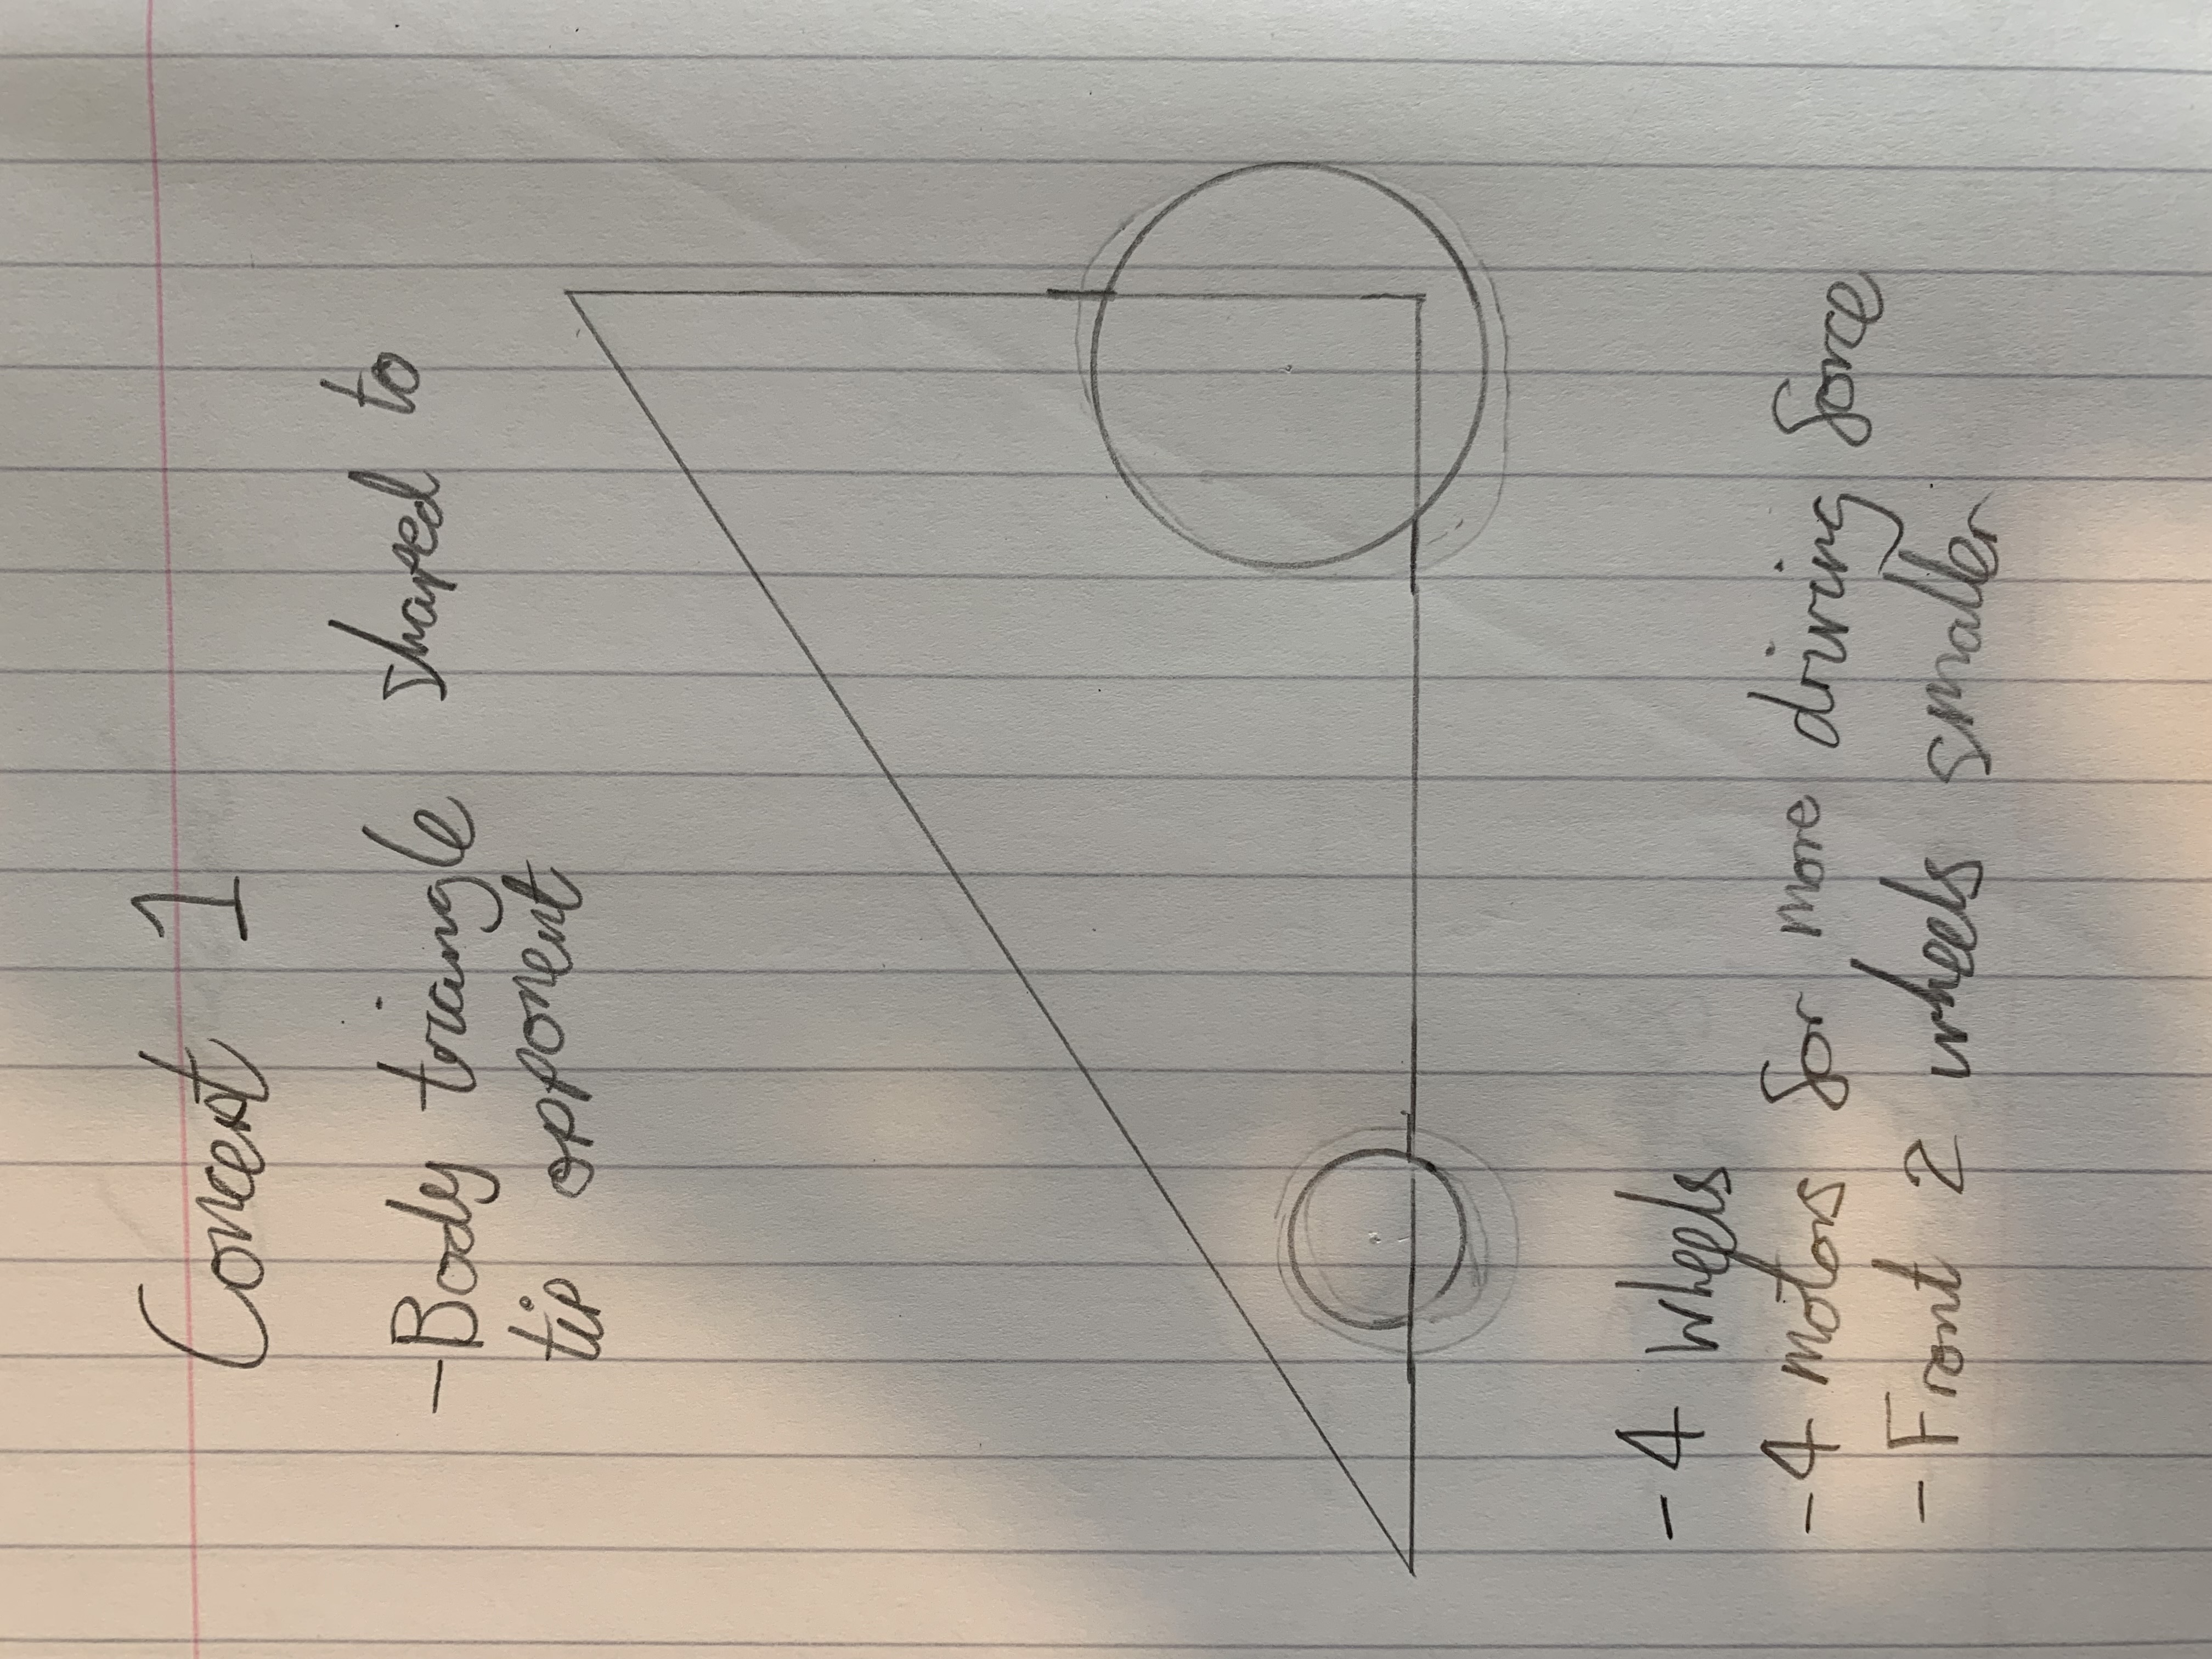 Concept 1
-Body triangle shaped to
tip opponent
-4 wheels
-4 motors for more driving force
-Front 2 wheels smaller